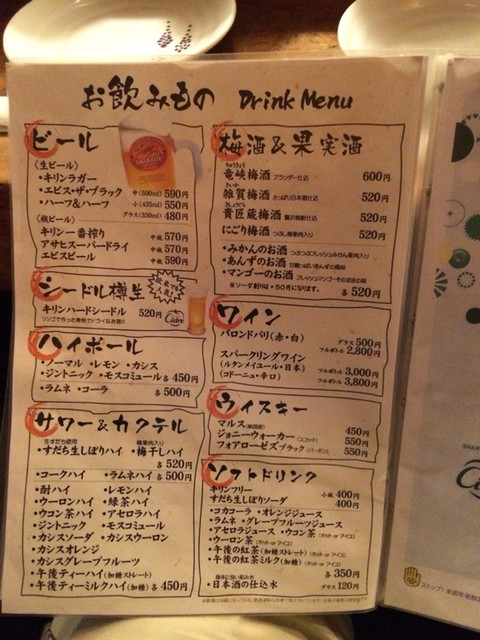 お飲みもの Drink Menu
ビール
〈生ビール〉
・キリンラガー
・エビス・ザ・ブラック 中(500ml) 590円
・ハーフ&ハーフ 小(435ml) 550円
グラス(330ml) 480円
〈瓶ビール〉
キリン一番搾り 中瓶 570円
アサヒスーパードライ 中瓶 570円
エビスビール 中瓶 590円
シードル樽生
キリンハードシードル 520円
リンゴで作った果物でドライなお酒!!
ハイボール
・ノーマル ・レモン ・カシス
・ジントニック ・モスコミュール 各450円
・ラムネ ・コーラ 各500円
サワー&カクテル
生すだち使用
・すだち生しぼりハイ ・梅干しハイ
各520円
・コークハイ ・ラムネハイ 各500円
・酎ハイ ・レモンハイ
・ウーロンハイ ・緑茶ハイ
・ウコン茶ハイ ・アセロラハイ
・ジントニック ・モスコミュール
・カシスソーダ ・カシスウーロン
・カシスオレンジ
・カシスグレープフルーツ
・午後ティーハイ(加糖ストレート)
・午後ティーミルクハイ(加糖) 各450円
梅酒&果実酒
竜峡梅酒 ブランデー仕込 600円
雑賀梅酒 さっぱり日本酒仕込 520円
貴匠蔵梅酒 贅沢焼酎仕込 520円
にごり梅酒 つぶし梅果肉入り 520円
・みかんのお酒
・あんずのお酒
・マンゴーのお酒
※ソーダ割りは+50円になります。 各520円
ワイン
バロンドバリ(赤・白) グラス 500円
フルボトル 2,800円
スパークリングワイン
(ルタンメイユール・日本) フルボトル 3,000円
(コドーニュ・辛口) フルボトル 3,800円
ウィスキー
マルス 450円
ジョニーウォーカー(スコッチ) 550円
フォアローゼズブラック(バーボン) 550円
ソフトドリンク
キリンフリー 小瓶 400円
すだち生しぼりソーダ 400円
・コカコーラ ・オレンジジュース
・ラムネ ・グレープフルーツジュース
・アセロラジュース ・ウコン茶(ホット or アイス)
・ウーロン茶(ホット or アイス)
・午後の紅茶(加糖ストレート)(ホット or アイス)
・午後の紅茶ミルク(加糖)(ホット or アイス)
各350円
・日本酒の仕込水 グラス 120円